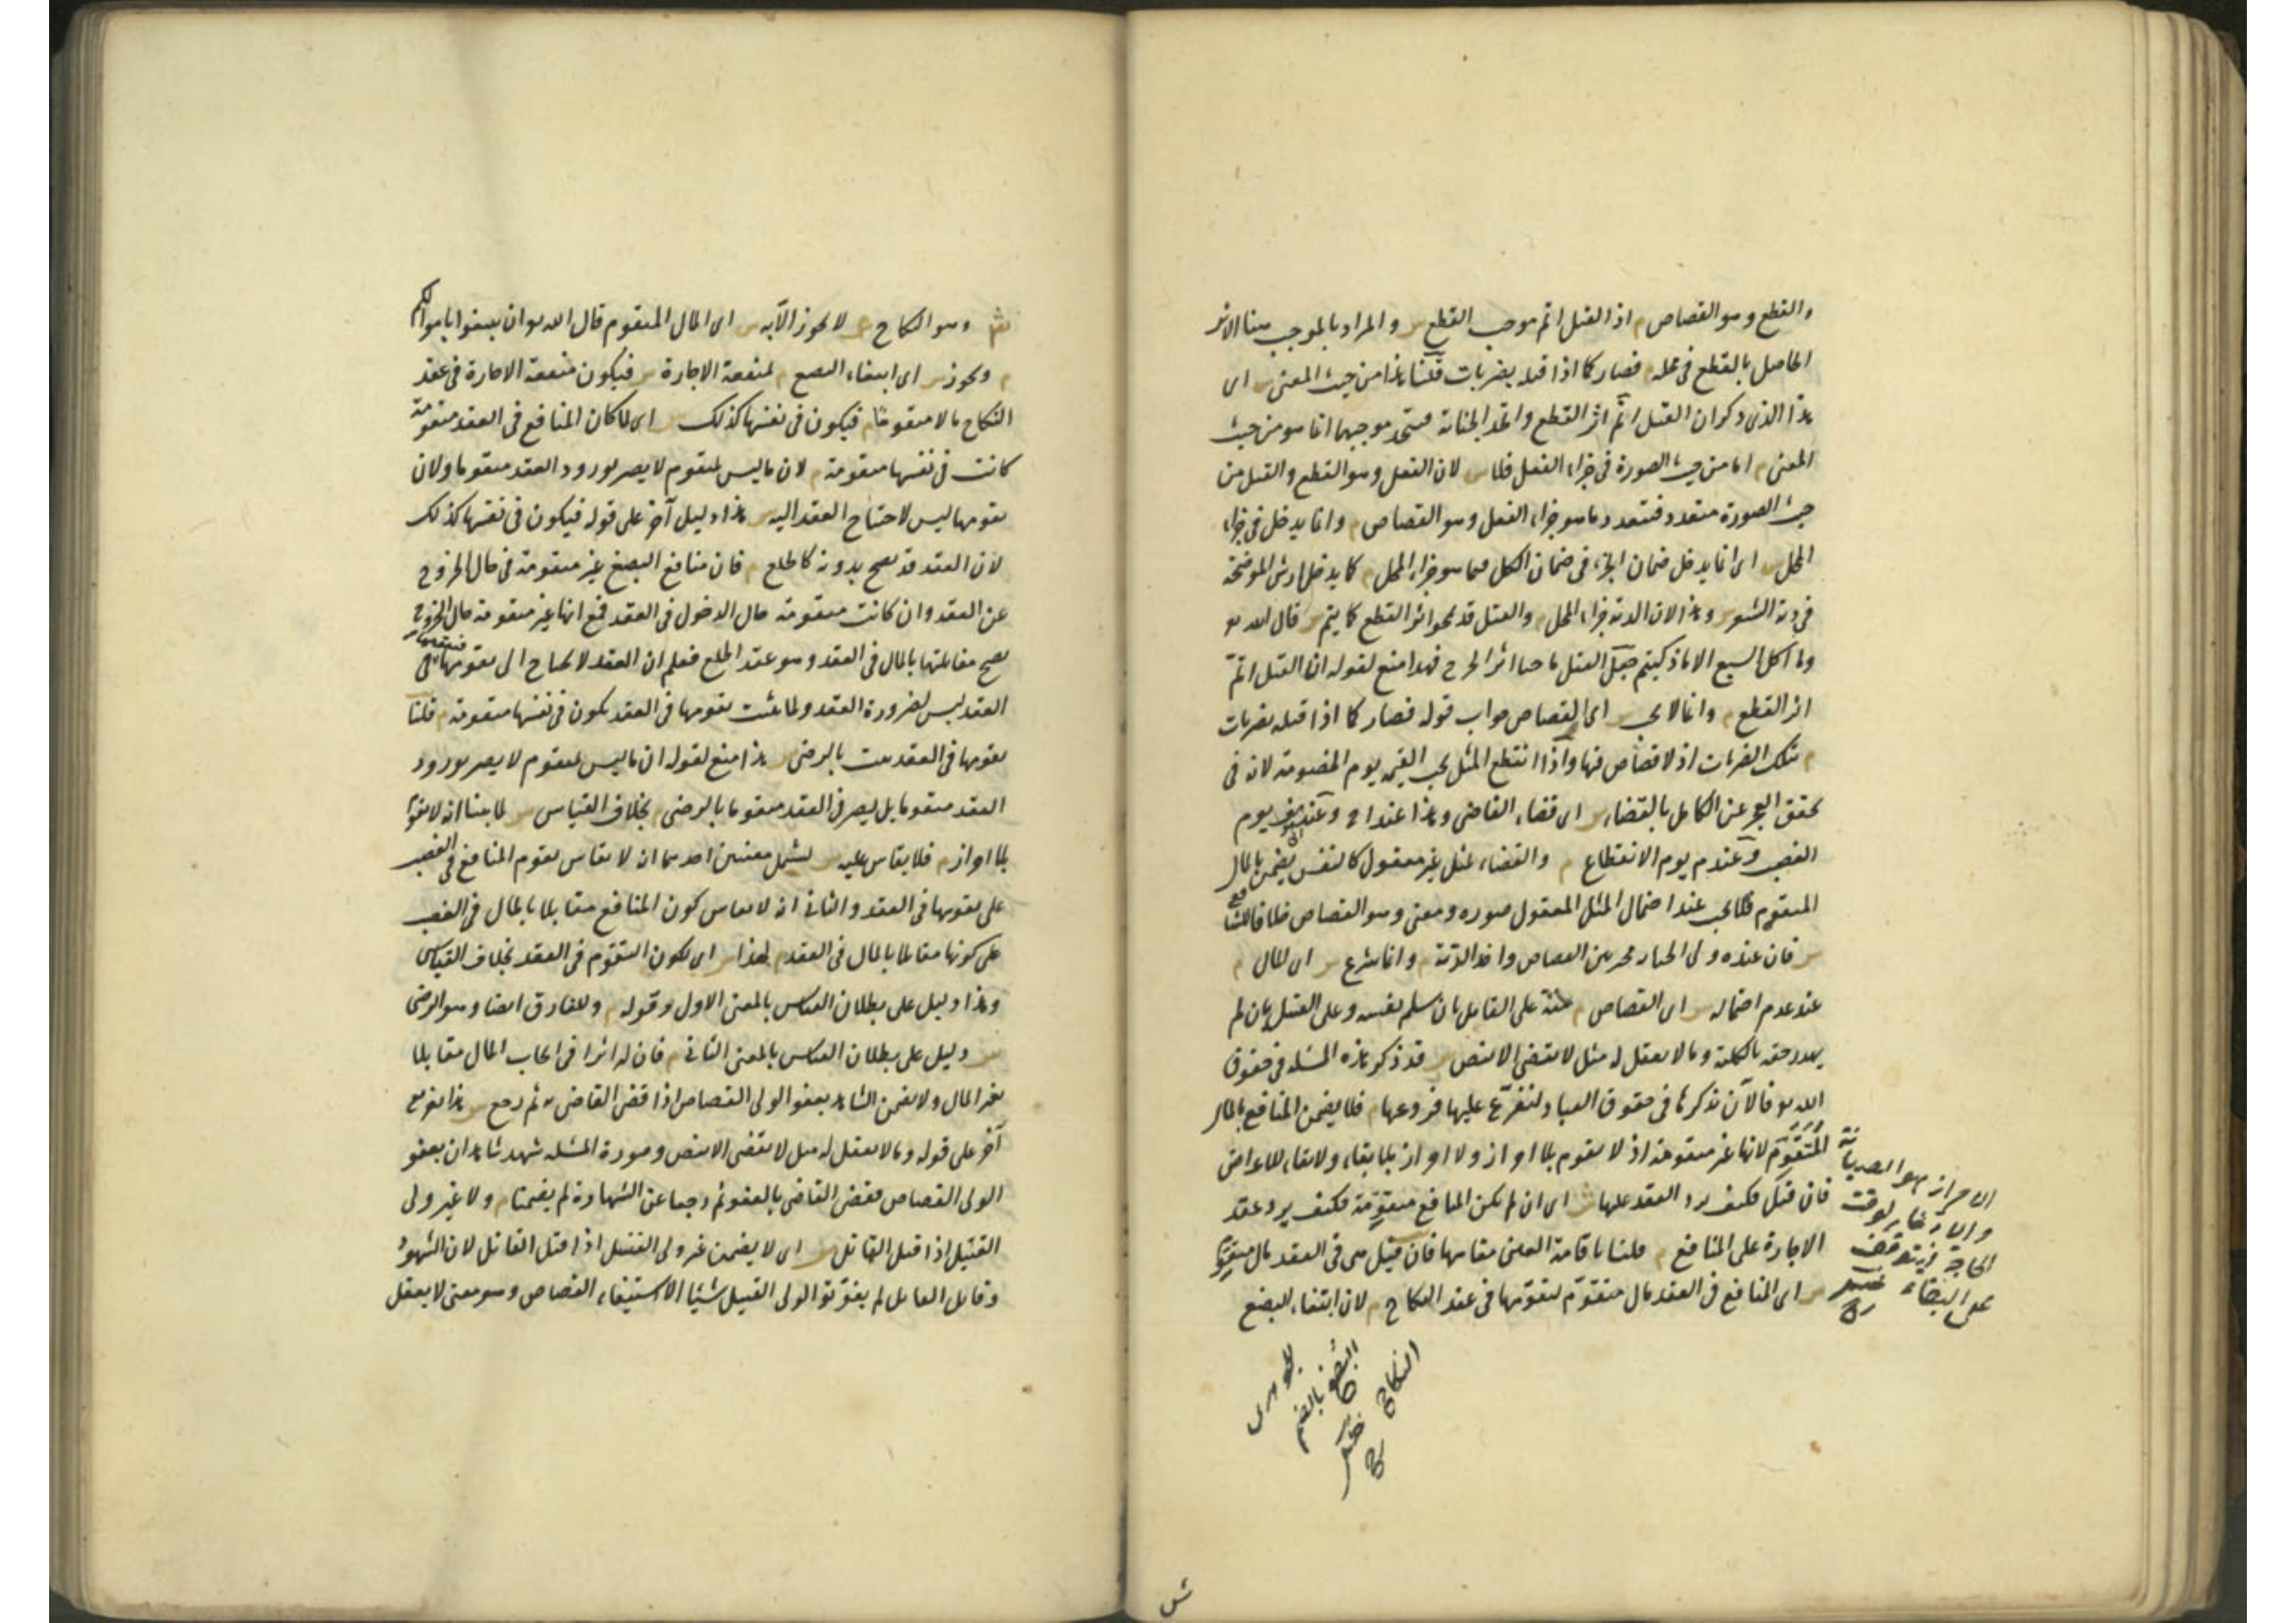 والقطع وهو القصاص م اذ القتل اتم موجب القطع س والمراد بالموجب هنا الاثر
الحاصل بالقطع في محله م فصار كما اذا قتله بضربات قلنا هذا من حيث المعنى س اى
هذا الذى ذكر ان القتل اتم اثر القطع واتحد الجناية فيتحد موجبهما انما هو من حيث
المعنى م اما من حيث الصورة في جزاء الفعل فلا س لان الفعل وهو القطع والقتل من
حيث الصورة متعدد فتعدد ما هو جزاء الفعل وهو القصاص م وانما يدخل في جزاء
المحل س اى انما يدخل ضمان الجزء في ضمان الكل فيما هو جزاء المحل م كما يدخل ارش الموضحة
في دية الشعر س وهذا لان الدية جزاء المحل م والقتل قد يمحو اثر القطع كما يتم س قال الله تع
وما اكل السبع الا ما ذكيتم جعل القتل ماحيا اثر الجرح فهذا منع لقوله ان القتل اتم
اثر القطع م وانما لا يجب س اى القصاص جواب قوله فصار كما اذا قتله بضربات
م تلك الضربات اذ لا قصاص فيها واذا انقطع المثل يجب القيمة يوم الخصومة لانه في
تحقق العجز عن الكامل بالقضاء س اى قضاء القاضى وهذا عند ابى ح وعند ابى يوسف يوم
الغصب وعند م يوم الانقطاع م والقضاء بمثل غير معقول كالنفس يضمن بالمال
المتقوم فلا يجب عند احتمال المثل المعقول صورة ومعنى وهو القصاص خلافا للشافعى
س فان عنده ولى الجناية مخير بين القصاص واخذ الدية م وانما شرع س اى المال م
عند عدم احتماله س اى القصاص م منة على القاتل بان سلم نفسه وعلى القتيل بان لم
يهدر حقه بالكلية وما لا يعقل له مثل لا يقضى الا بنص س قد ذكر هذه المسئلة في حقوق
الله تع فالآن نذكرها في حقوق العباد لنفرّع عليها فروعها م فلا يضمن المنافع بالمال
المتقوم لانها غير متقومة اذ لا تقوم بلا احراز ولا احراز بلا بقاء ولا بقاء للاعراض
فان قيل فكيف يرد العقد عليها ش اى ان لم يكن المنافع متقومة فكيف يرد عقد
الاجارة على المنافع م قلنا باقامة العين مقامها فان قيل هى في العقد مال متقوم
س اى المنافع في العقد مال متقوم لتقومها في عقد النكاح م لان ابتغاء البضع
الاحراز هو الصيانة
والادخار لوقت
الحاجة فيتوقف
على البقاء
البضع بالضم
النكاح
جوهرى
ش وهو النكاح م لا يجوز الا به س اى المال المتقوم قال الله تع ان تبتغوا باموالكم
م ويجوز س اى ابتغاء البضع م بمنفعة الاجارة س فيكون منفعة الاجارة في عقد
النكاح مالا متقوما م فيكون في نفسها كذلك س اى لما كان المنافع في العقد متقومة
كانت في نفسها متقومة م لان ما ليس بمتقوم لا يصير بورود العقد متقوما ولان
تقومها ليس لاحتياج العقد اليه س هذا دليل آخر على قوله فيكون في نفسها كذلك
لان العقد قد يصح بدونه كالخلع م فان منافع البضع غير متقومة في حال الخروج
عن العقد وان كانت متقومة حال الدخول في العقد فمع انها غير متقومة حال الخروج
يصح مقابلتها بالمال في العقد وهو عقد الخلع فعلم ان العقد لا يحتاج الى تقومها فتقومها في
العقد ليس لضرورة العقد ولما ثبت تقومها في العقد يكون في نفسها متقومة م قلنا
تقومها في العقد يثبت بالرضى س هذا منع لقوله ان ما ليس بمتقوم لا يصير بورود
العقد متقوما بل يصير في العقد متقوما بالرضى م بخلاف القياس س لما بينا انه لا تقوم
بلا احراز م فلا يقاس عليه س يشمل معنيين احدهما ان لا يقاس تقوم المنافع في الغصب
على تقومها في العقد والثانى ان لا يقاس كون المنافع مقابلا بالمال في الغصب
على كونها مقابلا بالمال في العقد م لهذا س اى لكون التقوم في العقد بخلاف القياس
وهذا دليل على بطلان القياس بالمعنى الاول وقوله م وللفارق ايضا وهو الرضى
س دليل على بطلان القياس بالمعنى الثانى م فان له اثرا في ايجاب المال مقابلا
بغير المال ولا يضمن الشاهد بعفو الولى القصاص اذا قضى القاضى به ثم رجع س هذا تفريع
آخر على قوله وما لا يعقل له مثل لا يقضى الا بنص وصورة المسئلة شهد شاهدان بعفو
الولى القصاص فقضى القاضى بالعفو ثم رجعا عن الشهادة لم يضمنا م ولا غير ولى
القتيل اذا قتل القاتل س اى لا يضمن غير ولى القتيل اذا قتل القاتل لان الشهود
وقاتل القاتل لم يفوّتوا لولى القتيل شيئا الا استيفاء القصاص وهو معنى لا يعقل